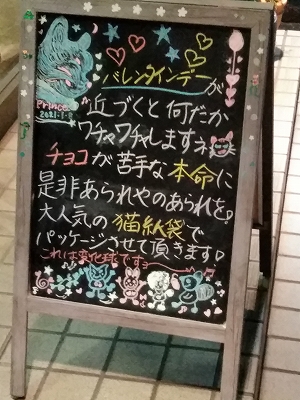 バレンタインデーが
Prince
2021・1・8
近づくと何だか
ワチャワチャしますネ
チョコが苦手な本命に
是非あられやのあられを♡
大人気の猫紙袋で
パッケージさせて頂きます♡
これは変化球ですョ